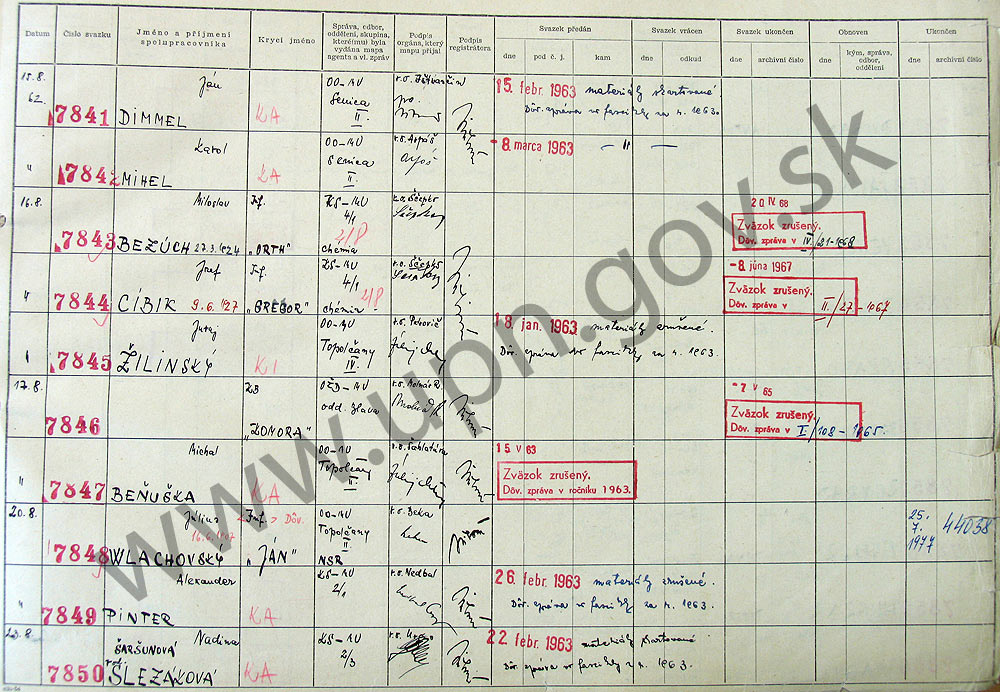 Datum
Číslo svazku
Jméno a příjmení
spolupracovníka
Krycí jméno
Správa, odbor,
oddělení, skupina,
které(mu) byla
vydána mapa
agenta s vl. zpráv
Podpis
orgána, který
mapu přijal
Podpis
registrátora
Svazek předán
dne
pod č. j.
kam
Svazek vrácen
dne
odkud
Svazek ukončen
dne
archivní číslo
Obnoven
dne
kým, správa,
odbor,
oddělení
Ukončen
dne
archivní číslo
15.8.
62.
7841
Ján
DIMMEL
KA
OO-MV
Senica
II.
15. febr. 1963 materiály skartované
Dôv. zpráva vo fascikly za r. 1963.
"
7842
Karol
MIHEL
KA
OO-MV
Senica
II.
-8. marca 1963
— " —
16.8.
7843
Miloslav
BEZÚCH 27.3.1924
Inf.
„ORTH"
KS-MV
4/1
2/8
chémia
20 IV 68
Zväzok zrušený.
Dôv. zpráva v IV/21-1968
"
7844
Jozef
CÍBIK 9.6.1927
Inf.
„GREGOR"
KS-MV
4/1
2/8
chémia
-8. júna 1967
Zväzok zrušený.
Dôv. zpráva v II./27-1967
7845
Juraj
ŽILINSKÝ
KI
OO-MV
Topoľčany
IV.
r.s. Petrovič
18. jan. 1963 materiály zrušené.
Dôv. zpráva vo fascikly za r. 1963.
17.8.
7846
KB
„ZONORA"
OŽD-MV
odd. Zlava
-7 V 65
Zväzok zrušený.
Dôv. zpráva v I/108-1965.
"
7847
Michal
BEŇUŠKA
KA
OO-MV
Topoľčany
II
15 V 63
Zväzok zrušený.
Dôv. zpráva v ročníku 1963.
20.8.
7848
Július
16.6.1907
WLACHOVSKÝ
Inf. > Dôv.
„JÁN"
OO-MV
Topoľčany
II.
NSR
r.s. Beka
25.
7.
1977
44038
"
7849
Alexander
PINTER
KA
KS-MV
2/1
r.s. Nedbal
26. febr. 1963 materiály zrušené.
Dôv. zpráva vo fascikly za r. 1963.
23.8.
7850
Nadina
ŠARŠUNOVÁ
rod.
ŠLEZÁKOVÁ
KA
KS-MV
2/3
22. febr. 1963 materiály skartované
Dôv. zpráva vo fascikly z r. 1963.
www.upn.gov.sk